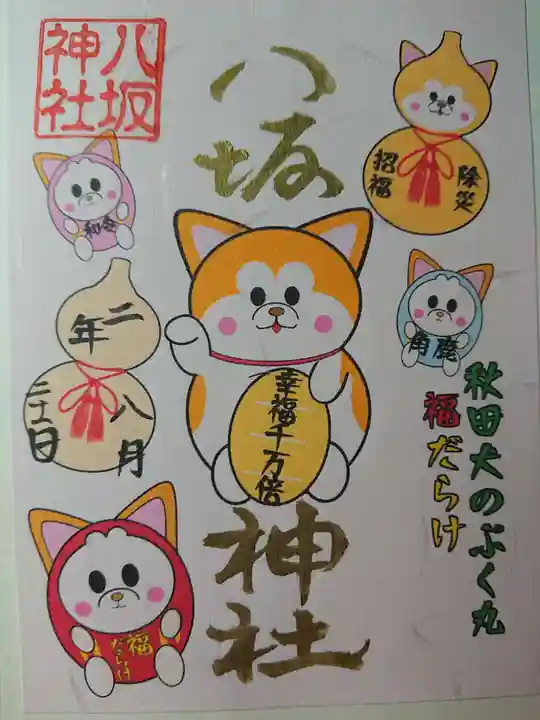 八坂
神社
八坂
神社
除災
招福
令和
二年
八月
二十一日
鹿角
幸福千万倍
秋田犬のぷく丸
福だらけ
福
だらけ